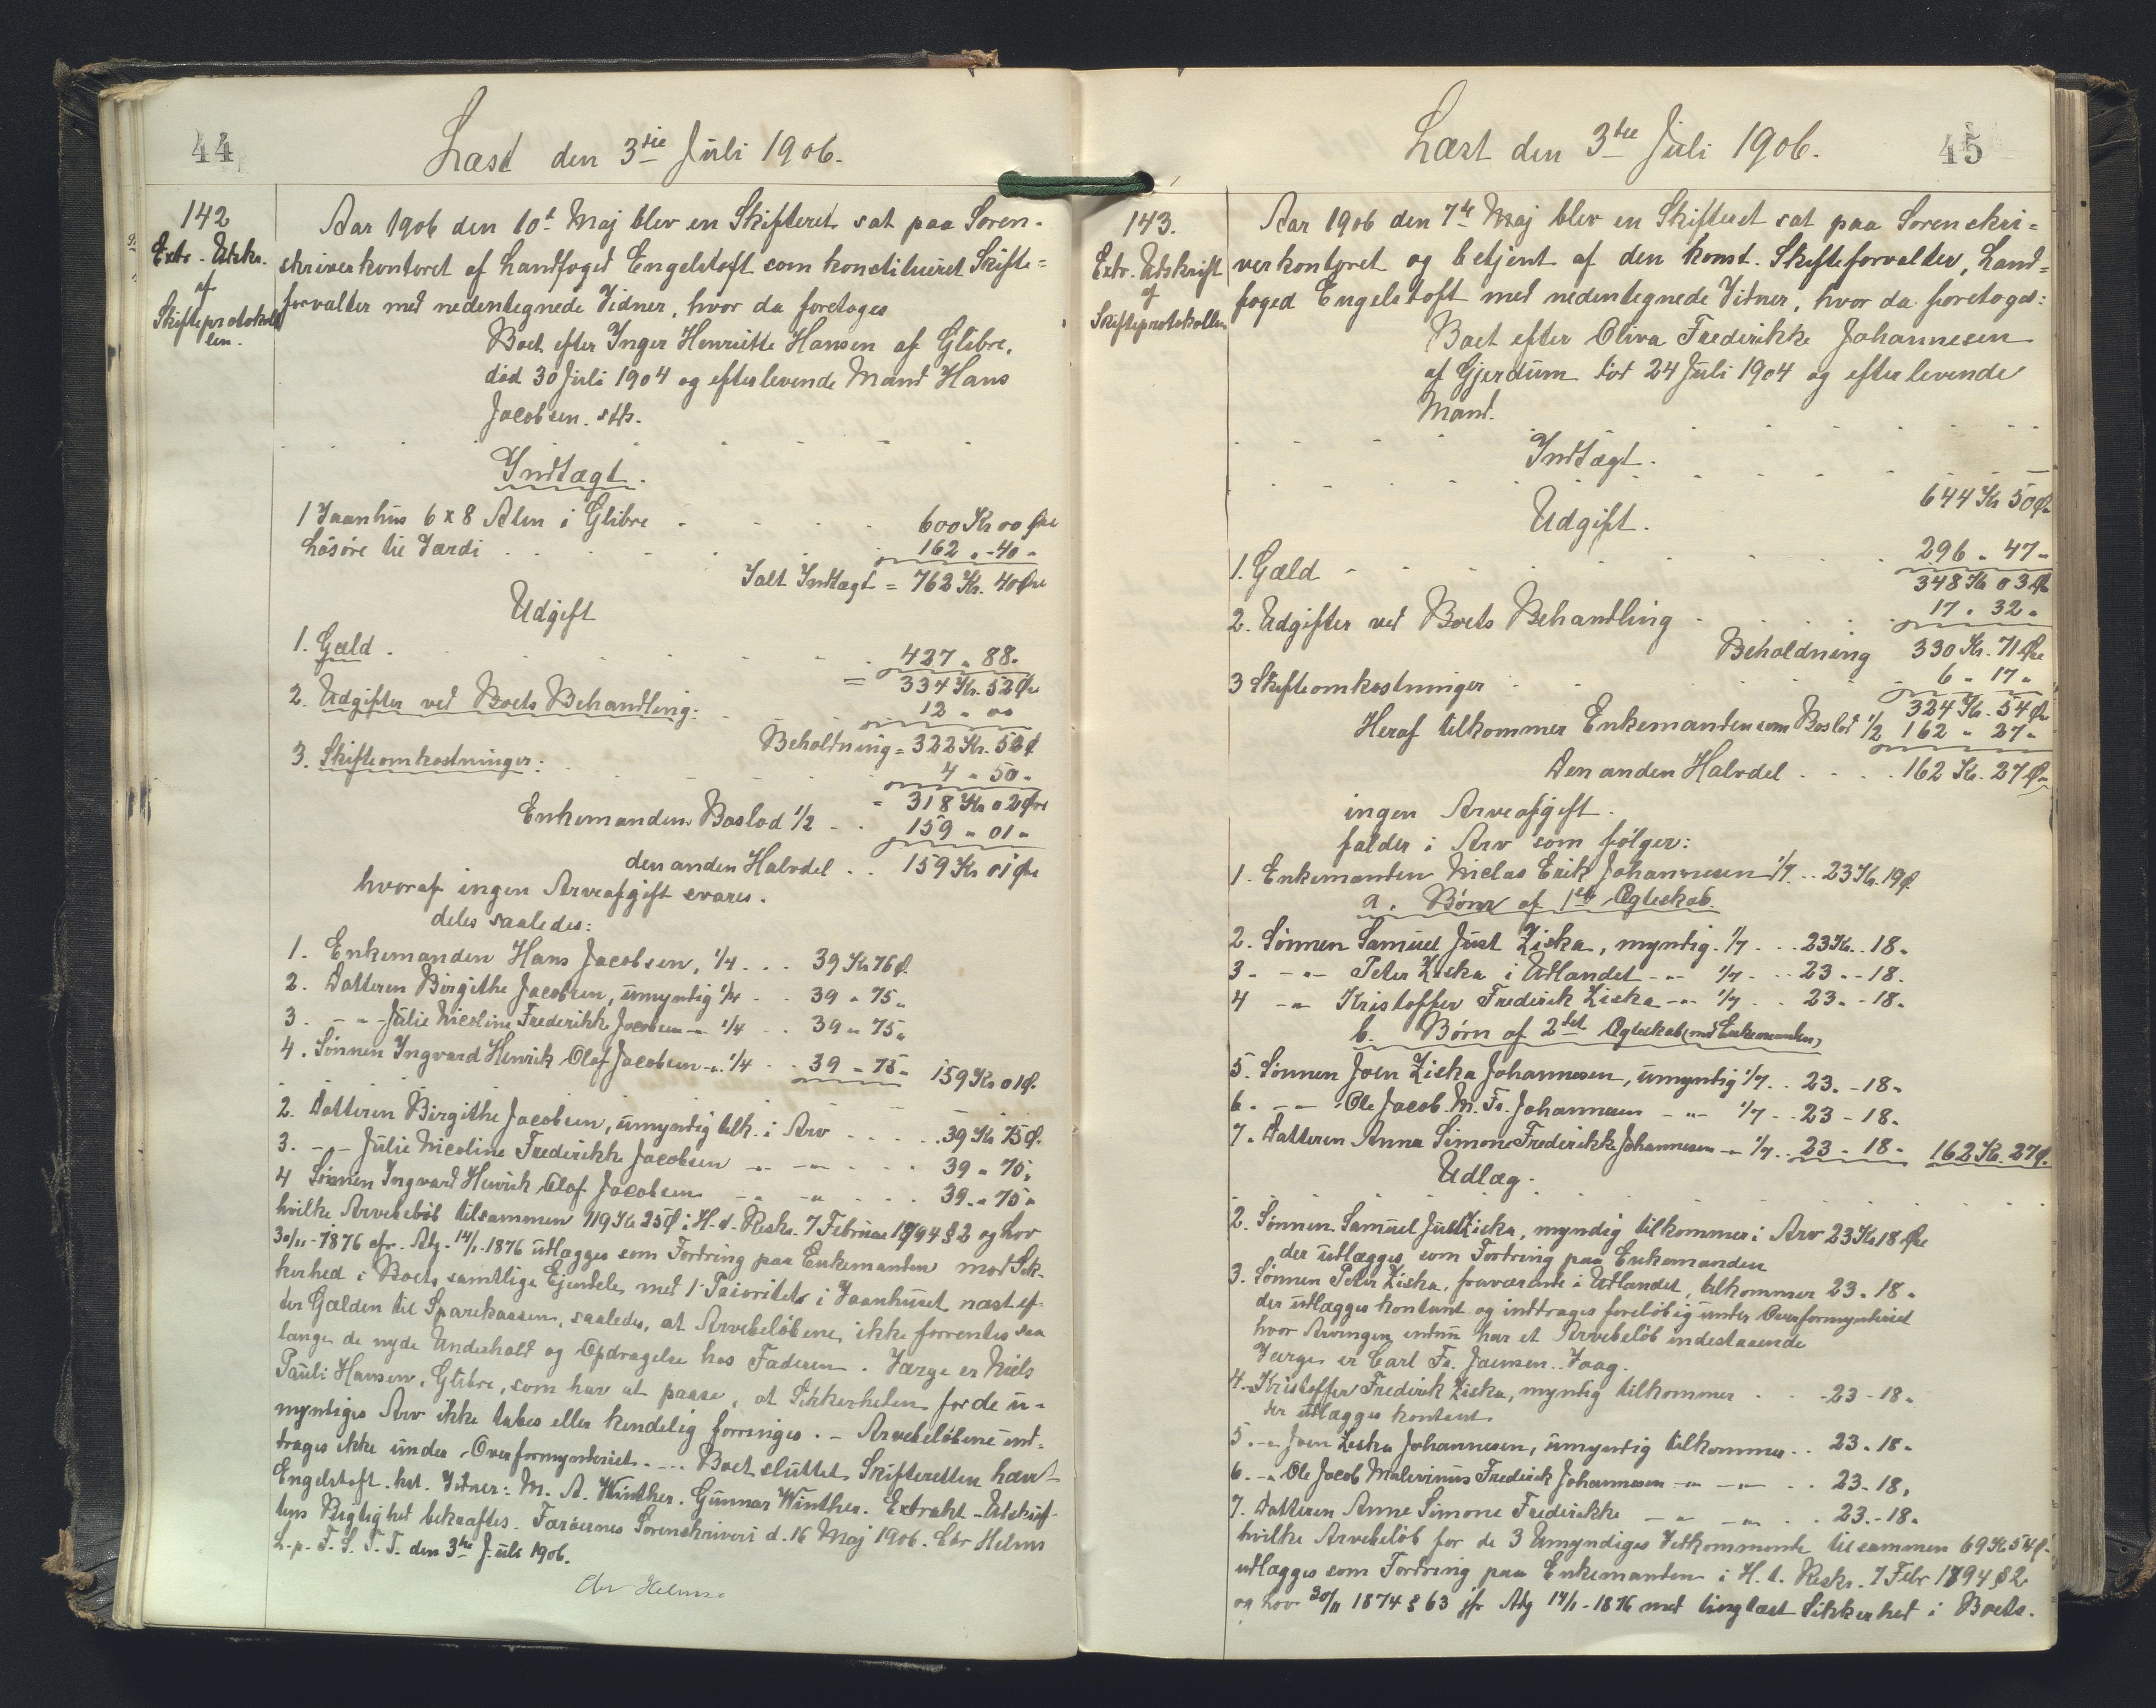 44
Læst den 3die Juli 1906.
142
Extr. Udskr.
af
Skifteprotokol
len.
Aar 1906 den 10d Maj blev en Skifteret sat paa Soren-
skriverkontoret af Landfoged Engelstoft som konstitueret Skifte=
forvalter med nedentegnede Vidner, hvor da foretoges
Boet efter Inger Henriette Hansen af Glibre,
død 30 Juli 1904 og efterlevende Mand Hans
Jacobsen. sth.
Indtægt.
1 Vaanhus 6 x 8 Alen i Glibre . . . . 600 Kr 00 Øre
Løsøre til Værdi . . . . 162 „ 40 „
Ialt Indtægt = 762 Kr. 40 Øre
Udgift
1. Gæld . . . . 427 „ 88 „
= 334 Kr. 52 Øre
2. Udgifter ved Boets Behandling: . . 12 „ 00
Beholdning = 322 Kr. 52 Ø
3. Skifteomkostninger: . . . 4 „ 50 „
= 318 Kr 02 Øre
Enkemandens Boslod 1/2 . . 159 „ 01 „
den anden Halvdel . . 159 Kr 01 Øre
hvoraf ingen Arveafgift svares.
deles saaledes:
1. Enkemanden Hans Jacobsen, 1/4 . . . 39 Kr 76 Ø.
2. Datteren Birgithe Jacobsen, umyndig 1/4 . . 39 „ 75 „
3. - „ - Julie Nicoline Frederikke Jacobsen - „ 1/4 . . 39 „ 75 „
4. Sønnen Ingvard Henrik Olaf Jacobsen - „ 1/4 . . 39 „ 75 „ 159 Kr 01 Ø.
2. Datteren Birgithe Jacobsen, umyndig tilk. i Arv . . . . 39 Kr 75 Ø.
3. - „ - Julie Nicoline Frederikke Jacobsen - „ - „ . . . 39 „ 75 „
4 Sønnen Ingvard Henrik Olaf Jacobsen - „ - „ . . . 39 „ 75 „
hvilke Arvebeløb tilsammen 119 Kr 25 Ø i H. t. Reskr. 7 Februar 1794 § 2 og Lov
30/11 - 1876 cfr. Adg. 14/1 - 1876 udlægges som Fordring paa Enkemanden mod Sik-
kerhed i Boets samtlige Ejendele, med 1. Prioritet i Vaanhuset næst ef-
ter Gælden til Sparekassen, saaledes, at Arvebeløbene ikke forrentes saa
længe de nyde Underhold og Opdragelse hos Faderen. Værge er Niels
Pauli Hansen, Glibre, som har at paase, at Sikkerheden for de u-
myndiges Arv ikke tabes eller kendelig forringes. - Arvebeløbene ind-
drages ikke under Overformynderiet. - . . Boet sluttet. Skifteretten hævet
Engelstoft. kst. Vidner: M. A. Winther. Gunnar Winther. Extrakt-Udskrif-
tens Rigtighed bekræftes. Færøernes Sorenskriveri d. 16 Maj 1906. Chr Helms
L. p. F. S. T. T. den 3die Juli 1906.
Chr Helms.
Læst den 3die Juli 1906.
45
143.
Extr. Udskrift
af
Skifteprotokollen
Aar 1906 den 7de Maj blev en Skifteret sat paa Sorenskri=
verkontoret og betjent af den konst. Skifteforvalter, Land=
foged Engelstoft med nedentegnede Vidner, hvor da foretoges:
Boet efter Oliva Frederikke Johannesen
af Gjerdum død 24 Juli 1904 og efterlevende
Mand.
Indtægt.
644 Kr 50 Ø
Udgift.
1. Gæld . . . . 296 „ 47 „
348 Kr 03 Ø
2. Udgifter ved Boets Behandling . . . 17 „ 32 „
Beholdning 330 Kr. 71 Øre
3 Skifteomkostninger . . . 6 „ 17 „
324 Kr. 54 Ø
Heraf tilkommer Enkemanden som Boslod 1/2 162 „ 27 „
Den anden Halvdel . . . . 162 Kr. 27 Ø
ingen Arveafgift.
falder i Arv som følger:
1. Enkemanden Niclas Erik Johannesen 1/7 . . 23 Kr. 19 Ø.
a. Børn af 1ste Ægteskab.
2. Sønnen Samuel Just Ziska, myndig. 1/7 . . . 23 Kr. . 18 „
3. - „ - Peter Ziska i Udlandet - „ 1/7 . . . 23 „ - 18 „
4 - „ Kristoffer Frederik Ziska - „ 1/7 . . 23 „ - 18 „
b. Børn af 2det Ægteskab (med Enkemanden)
5. Sønnen Joen Ziska Johannesen, umyndig 1/7 . . 23 „ - 18 „
6. - „ - Ole Jacob. M. Fr. Johannesen - „ - 1/7 . . 23 - 18 „
7. Datteren Anna Simone Frederikke Johannesen - „ 1/7 . . 23 - 18 „ 162 Kr. 27 Ø.
Udlæg.
2. Sønnen Samuel Just Ziska, myndig tilkommer i Arv 23 Kr 18 Øre
der udlægges som Fordring paa Enkemanden
3. Sønnen Peter Ziska, fraværende i Udlandet, tilkommer 23 „ 18 „
der udlægges kontant og inddrages foreløbig under Overformynderiet
hvor Arvingen endnu har et Arvebeløb indestaaende
Værge er Carl Fr. Joensen. . Vaag.
4. Kristoffer Frederik Ziska, myndig tilkommer . . 23 - 18 „
der udlægges kontant.
5. - „ Joen Ziska Johannesen, umyndig tilkommer . . 23 „ 18 „
6. - „ Ole Jacob Malvinus Frederik Johannesen - „ - „ - . . 23 - 18 „
7. Datteren Anne Simone Frederikke - „ - „ . . 23 - 18 „
hvilke Arvebeløb for de 3 Umyndiges Vedkommende tilsammen 69 Kr 54 Ø.
udlægges som Fordring paa Enkemanden i H. t. Reskr. 7 Febr 1794 § 2
og Lov 30/11 1874 § 63 jfr Adg 14/1 - 1876 med tinglæst Sikkerhed i Boets.